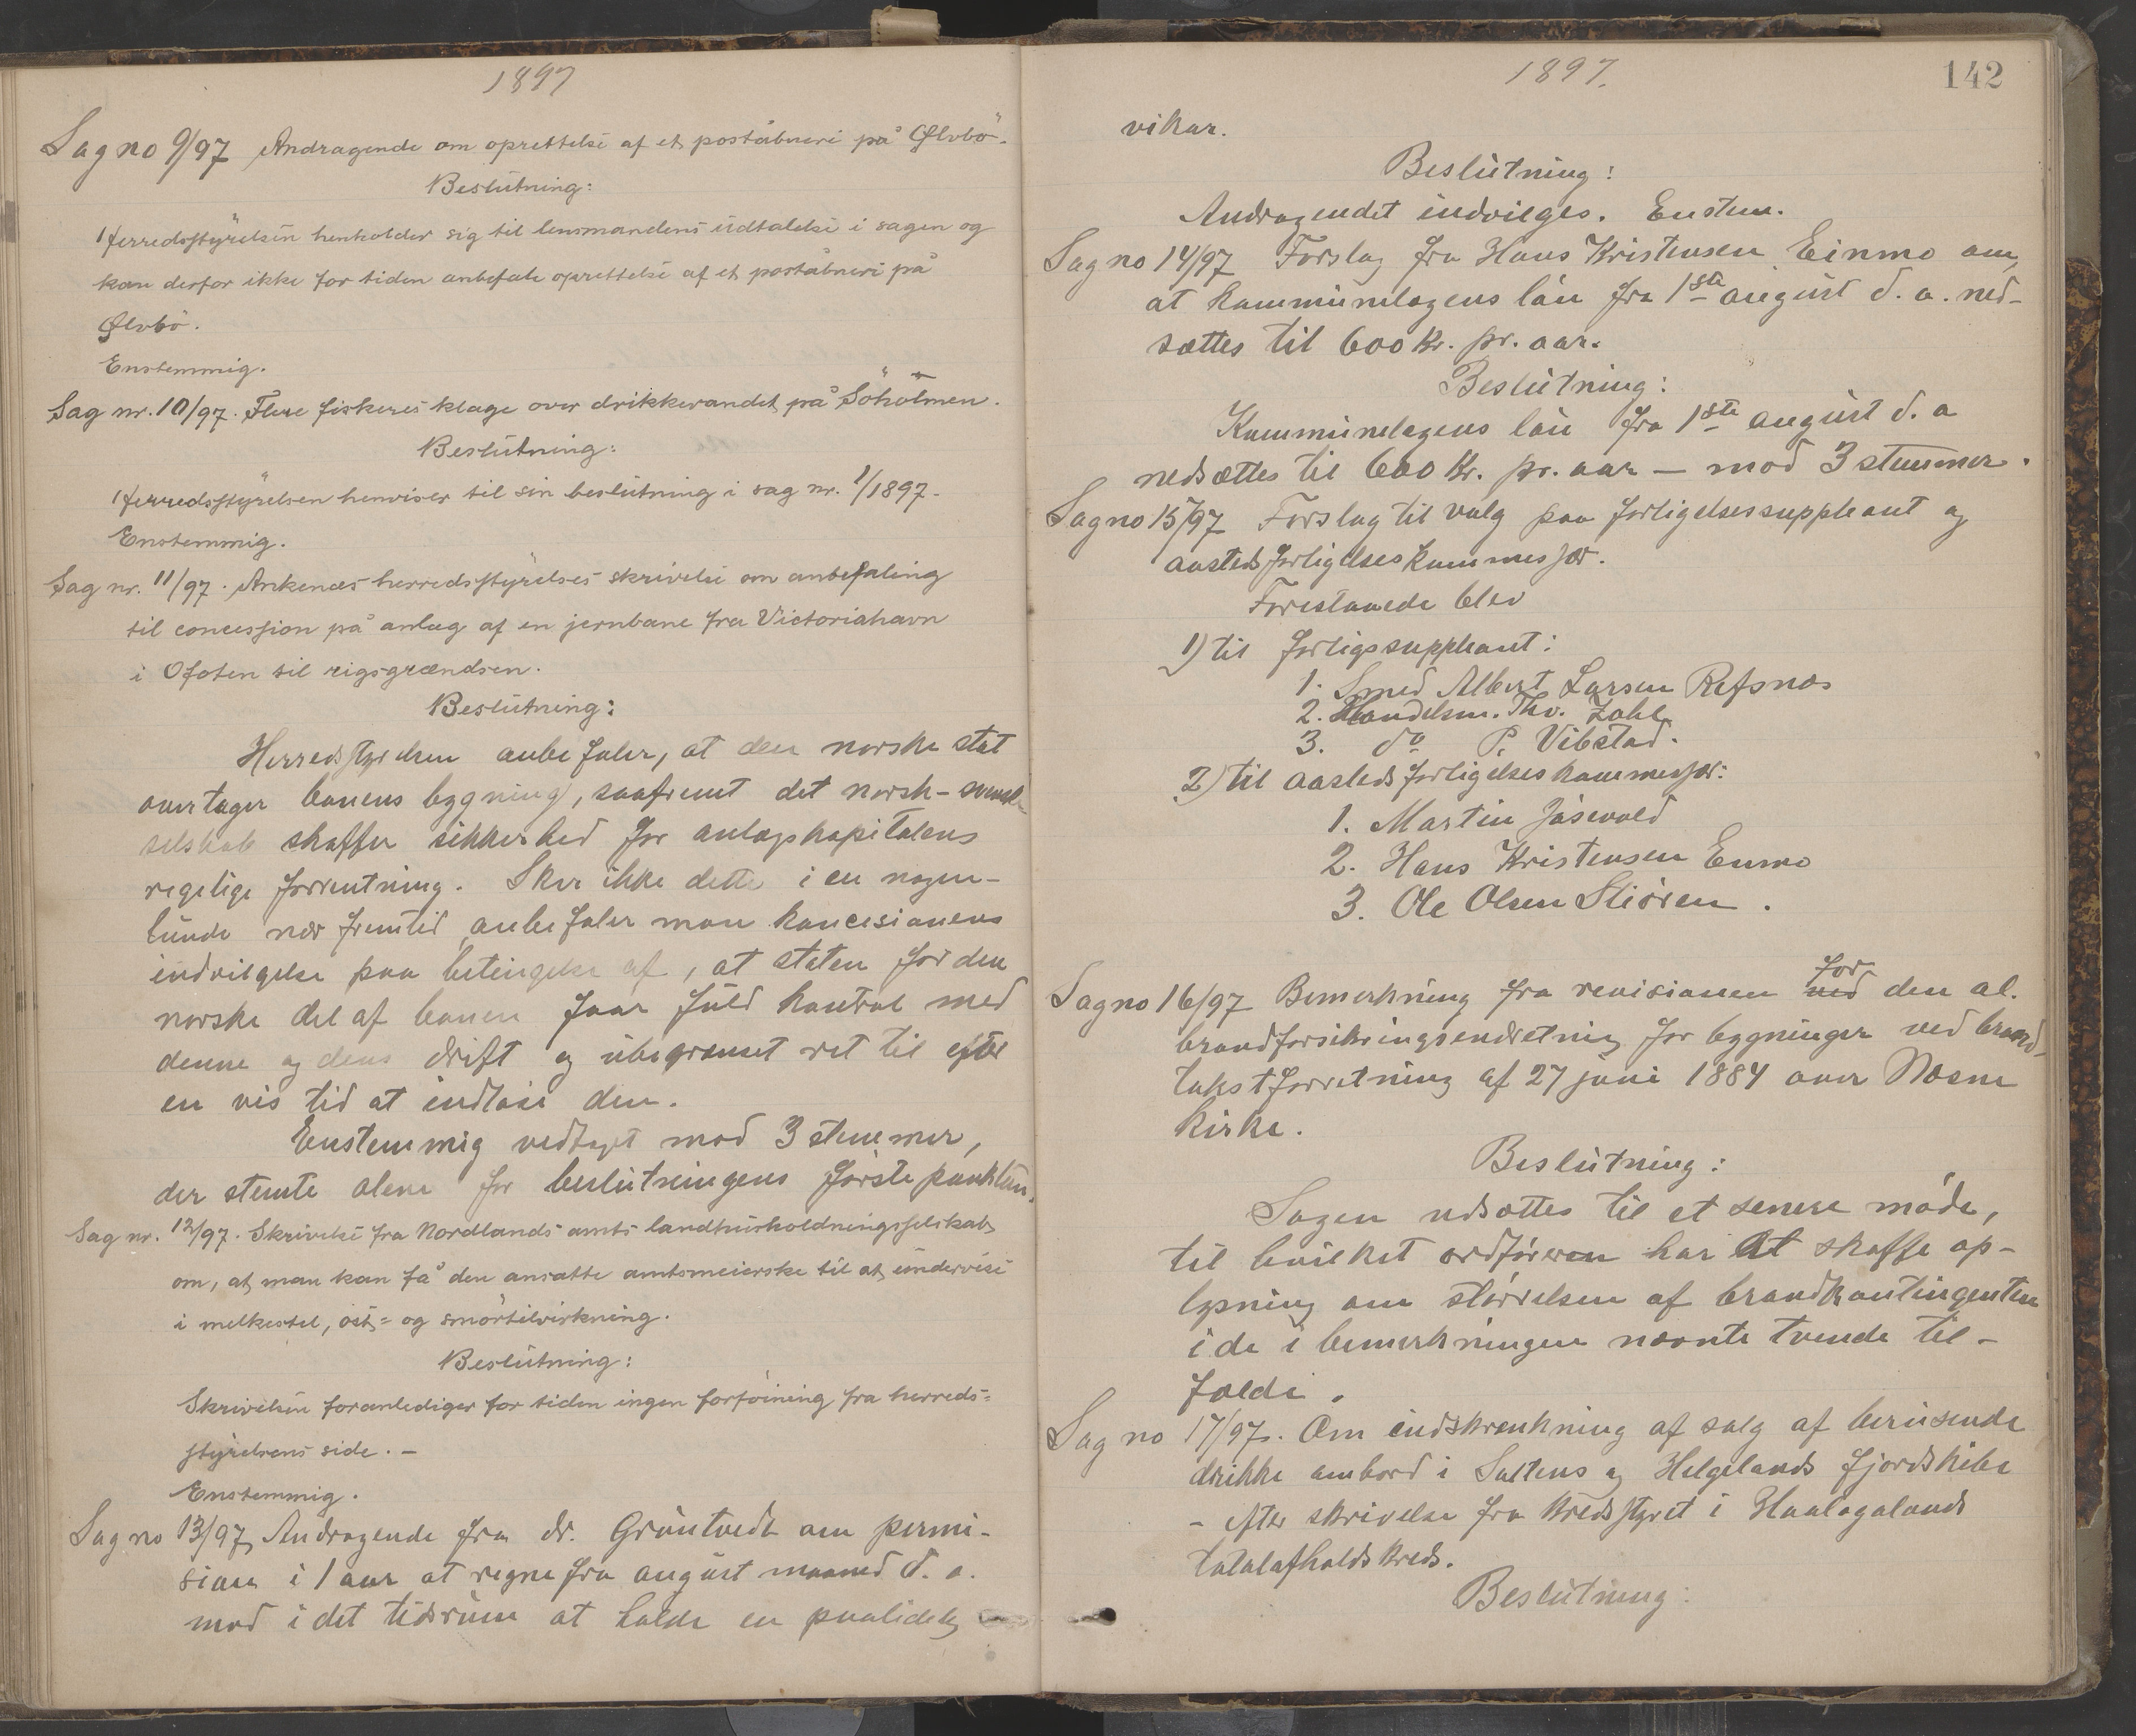 1897
Sag no 9/97 Andragende om oprettelse af et poståbneri på Ølvbö.
Beslutning:
Herredsstyrelsen henholder sig til lensmandens udtalelse i sagen og
kan derfor ikke for tiden anbefale oprettelse af et poståbneri på
Ølvbö.
Enstemmig.
Sag nr. 10/97. Flere fiskeres klage over drikkevandet på Söholmen.
Beslutning:
Herredsstyrelsen henviser til sin beslutning i sag nr. 1/1897.
Enstemmig.
Sag nr. 11/97. Ankenæs herredsstyrelses skrivelse om anbefaling
til concession på anlæg af en jernbane fra Victoriahavn
i Ofoten til rigsgrændsen.
Beslutning:
Herredsstyrelsen anbefaler, at den norske stat
overtager banens bygning, saafremt det norsk-svensk-
selskab skaffer sikkerhed for anlægskapitalens
regelige forrentning. Sker ikke dette i en nogen-
lunde nær fremtid, anbefaler man koncesionens
indvilgelse paa betingelse af, at staten for den
norske del af banen faar fuld kontrol med
denne og dens drift og ubegrænset ret til efter
en vis tid at indløse den.
Enstemmig vedtaget mod 3 stemmer,
der stemte alene for beslutningens første punktum.
Sag nr. 12/97. Skrivelse fra Nordlands amts landhusholdningsselskab
om, at man kan få den ansatte amtsmeierske til at undervise
i melkestel, ost- og smörtilvirkning.
Beslutning:
Skrivelsen foranlediger for tiden ingen forföining fra herreds=
styrelsens side. —
Enstemmig.
Sag no 13/97 Andragende fra dr. Gruntvedt om permi-
sion i 1 aar at regne fra august maaned d. a.
mod i det tidsrum at holde en paalidelig
1897.
142
vikar.
Beslutning:
Andragendet indvilges. Enstem.
Sag no 14/97 Forslag fra Hans Kristensen Einmo om,
at kommunelægens løn fra 1ste august d. a. ned-
sættes til 600 Kr. pr. aar.
Beslutning:
Kommunelægens løn fra 1ste august d. a
nedsættes til 600 Kr. pr. aar — mod 3 stemmer.
Sag no 15/97 Forslag til valg paa forligelsessuppleant og
aastedsforligelseskommissær.
Forestaaede blev
1) til forligssuppleant:
1. Smed Albert Larsen Refsnæs
2. Handelsm. Thv. Zahl
3. do P. Vibstad.
2) til aastedsforligelseskommessær:
1. Martin Jøsevold
2. Hans Kristensen Enmo
3. Ole Olsen Stiøren.
Sag no 16/97 Bemerkning fra revisionen ved for den al.
brandforsikringsendretning for bygninger ved brand-
takstforretning af 27 juni 1884 over Næsne
kirke.
Beslutning:
Sagen udsættes til et senere møde,
til hvilket ordføreren har at skaffe op-
lysning om størrelsen af brandkontingenten
i de i bemerkningen nævnte tvende til-
fælde.
Sag no 17/97. Om indskrenkning af salg af berusende
drikke ombord i Saltens og Helgelands fjordskibe
– efter skrivelse fra kredsstyret i Haalogalands
totalafholdskreds.
Beslutning: